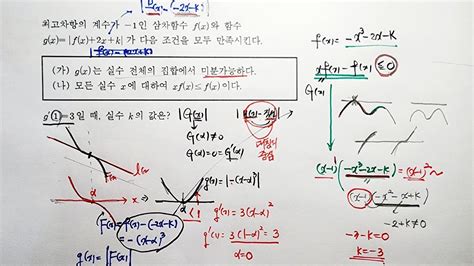 최고차항의 계수가 -1인 삼차함수 f(x)와 함수
g(x)=|f(x)+2x+k|가 다음 조건을 모두 만족시킨다.
(가) g(x)는 실수 전체의 집합에서 미분가능하다.
(나) 모든 실수 x에 대하여 xf(x)≤f(x)이다.
g'(1)=3일 때, 실수 k의 값은?
|G(x)|
G(α)≠0
G(α)=0=G'(α)
g(x)=|-(x-α)³|
g'(x)=3(x-α)²
g'(1)=3(1-α)²=3
α=0
F(x)=f(x)-(-2x-k)
=-(x-α)³
g(x)=|F(x)|
f(x)=-x³-2x-k
xf(x)-f(x)≤0
G(x)
(x-1)(-x³-2x-k)=-(x-1)²~
(x-1)(-x²-x+k)
-2+k≠0
-3-k=0
k=-3